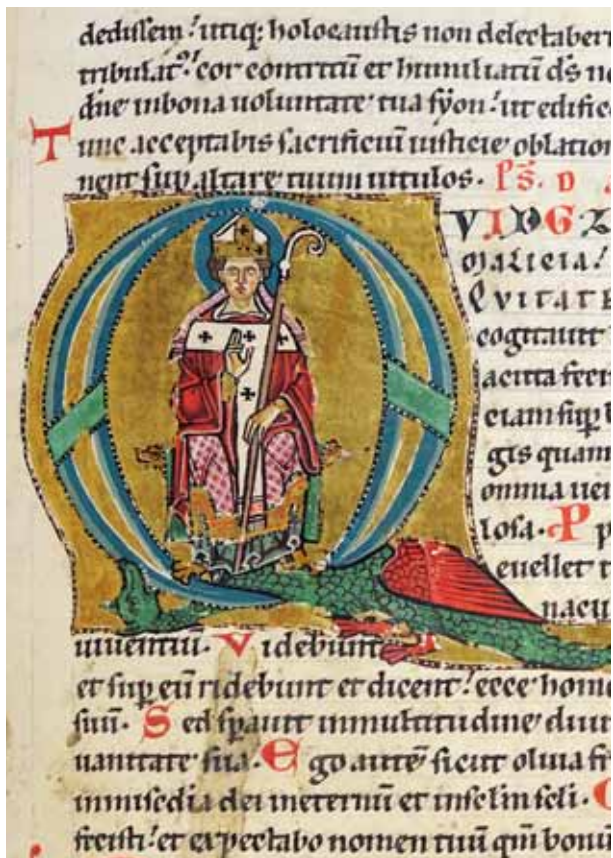 dedissem utiq: holocaustis non delectaberi
tribulat cor contritū et humiliatū ds
dne in bona uoluntate tua syon ut edifice
Tunc acceptabis sacrificiū iusticie oblation
nent sup altare tuum uitulos. Ps. D
VID GL
malicia
QVITATE
cogitauit
acuta feci
ciam sup
gis quam
omnia uer
losa. Pp
euellet t
uiuentiū. Videbunt
et sup eū ridebunt et dicent ecce homo
suū. Sed spauit in multitudine diui
uanitate sua. Ego autē sicut oliua fr
in misedia dei in eternū et in sclm scli.
fecisti et expectabo nomen tuū qm bonū